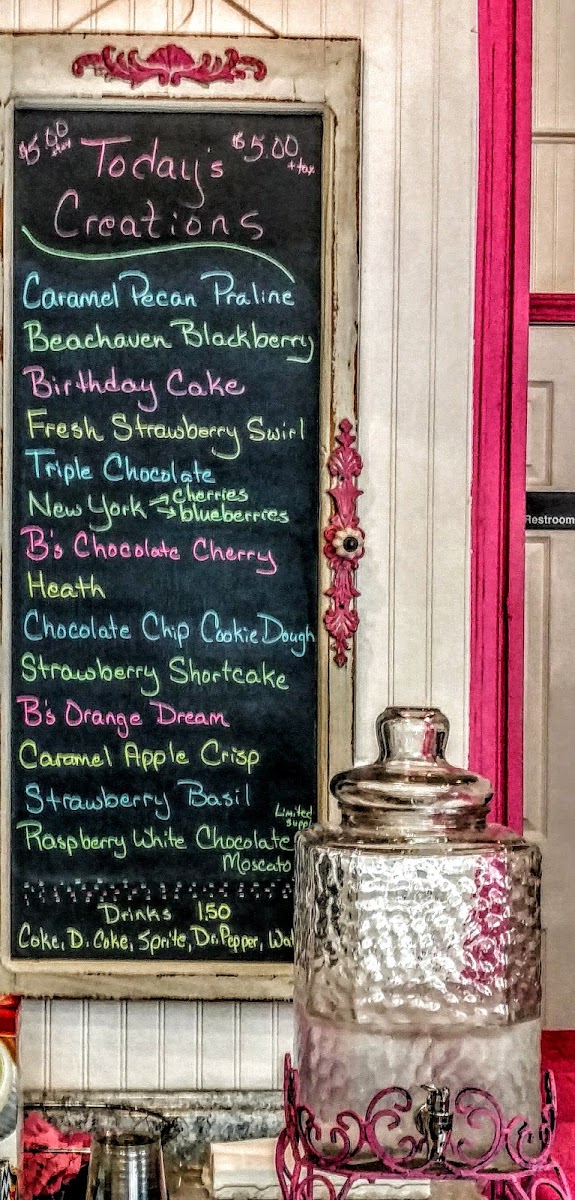 $5.00 +tax
$5.00 +tax
Today's
Creations
Caramel Pecan Praline
Beachaven Blackberry
Birthday Cake
Fresh Strawberry Swirl
Triple Chocolate
New York → cherries
→ blueberries
B's Chocolate Cherry
Heath
Chocolate Chip Cookie Dough
Strawberry Shortcake
B's Orange Dream
Caramel Apple Crisp
Strawberry Basil
Limited
Raspberry White Chocolate
Moscato
Drinks 1.50
Coke, Di. Coke, Sprite, Dr. Pepper,
Restroom